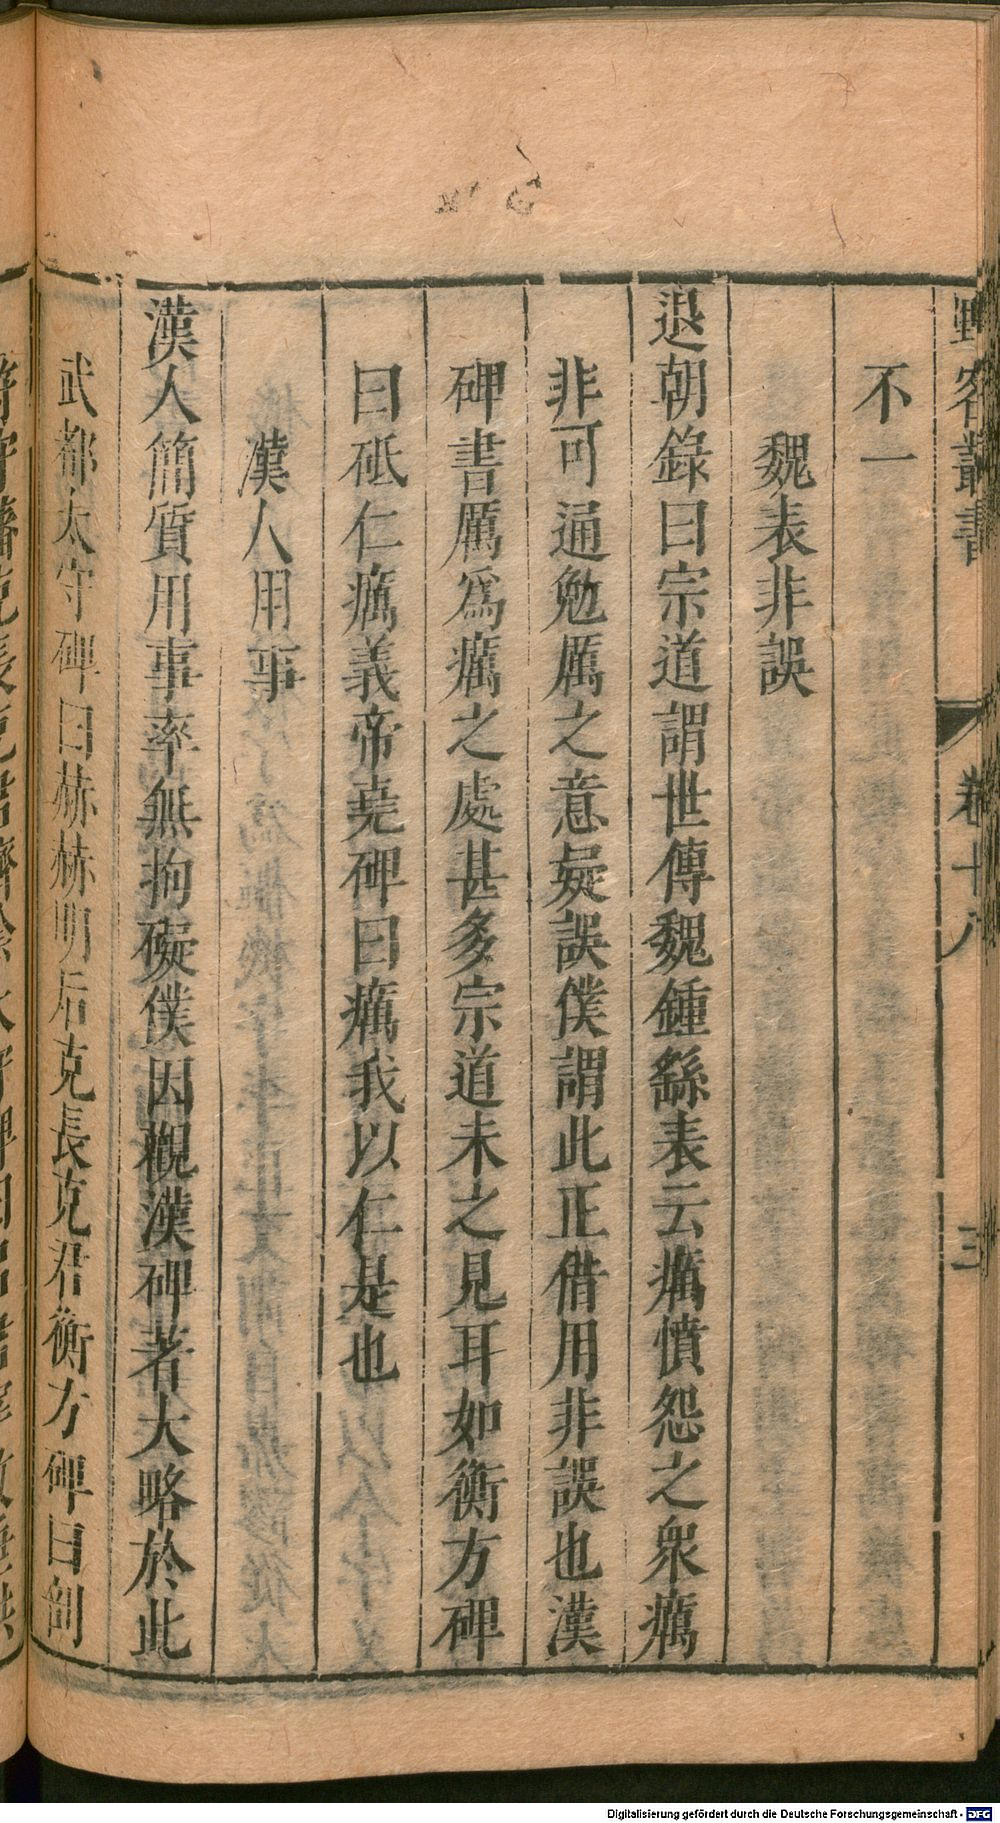 野客叢書
卷十八
三
不一
魏表非誤
退朝錄曰宗道謂世傳魏鍾繇表云癘憤怨之衆癘
非可通勉厲之意疑誤僕謂此正借用非誤也漢
碑書厲爲癘之處甚多宗道未之見耳如衡方碑
曰砥仁癘義帝堯碑曰癘我以仁是也
漢人用事
漢人簡質用事率無拘礙僕因觀漢碑著大略於此
武都太守碑曰赫赫明后克長克君衡方碑曰剖
Digitalisierung gefördert durch die Deutsche Forschungsgemeinschaft - DFG